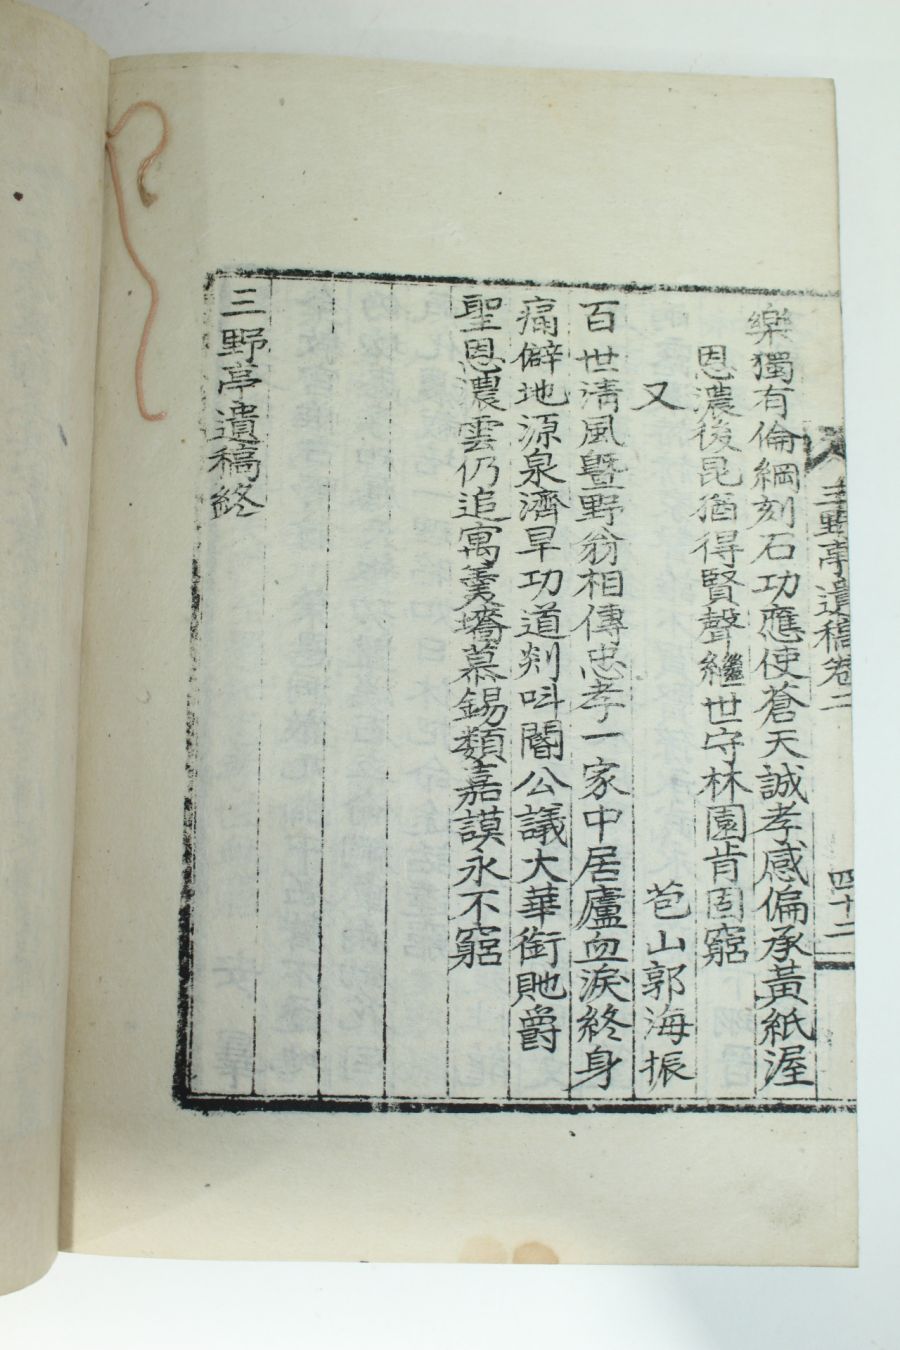 三野亭遺稿卷二
四十二
樂獨有倫綱刻石功應使蒼天誠孝感偏承黃紙渥
恩濃後昆猶得賢聲繼世守林園肯固窮
又
苞山郭海振
百世淸風曁野翁相傳忠孝一家中居廬血淚終身
痛僻地源泉濟旱功道剡叫閽公議大華銜貤爵
聖恩濃雲仍追寓羹墻慕錫類嘉謨永不窮
三野亭遺稿終